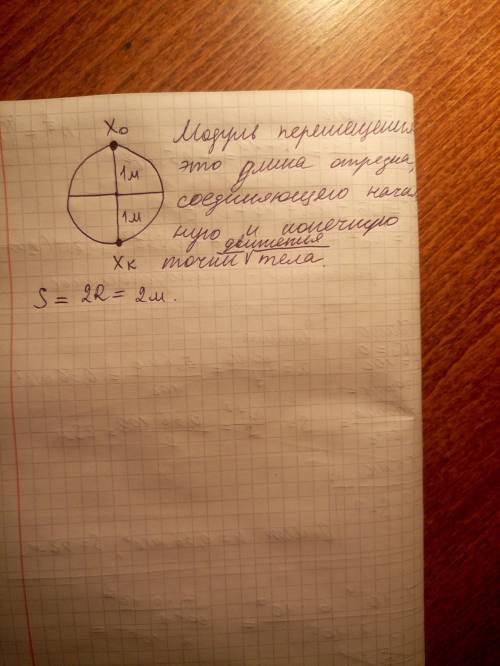 X₀
Модуль перемещения
1м
это длина отрезка,
соединяющего началь
1м
ную и конечную
движения
Xк
точки √ тела.
S = 2R = 2м.